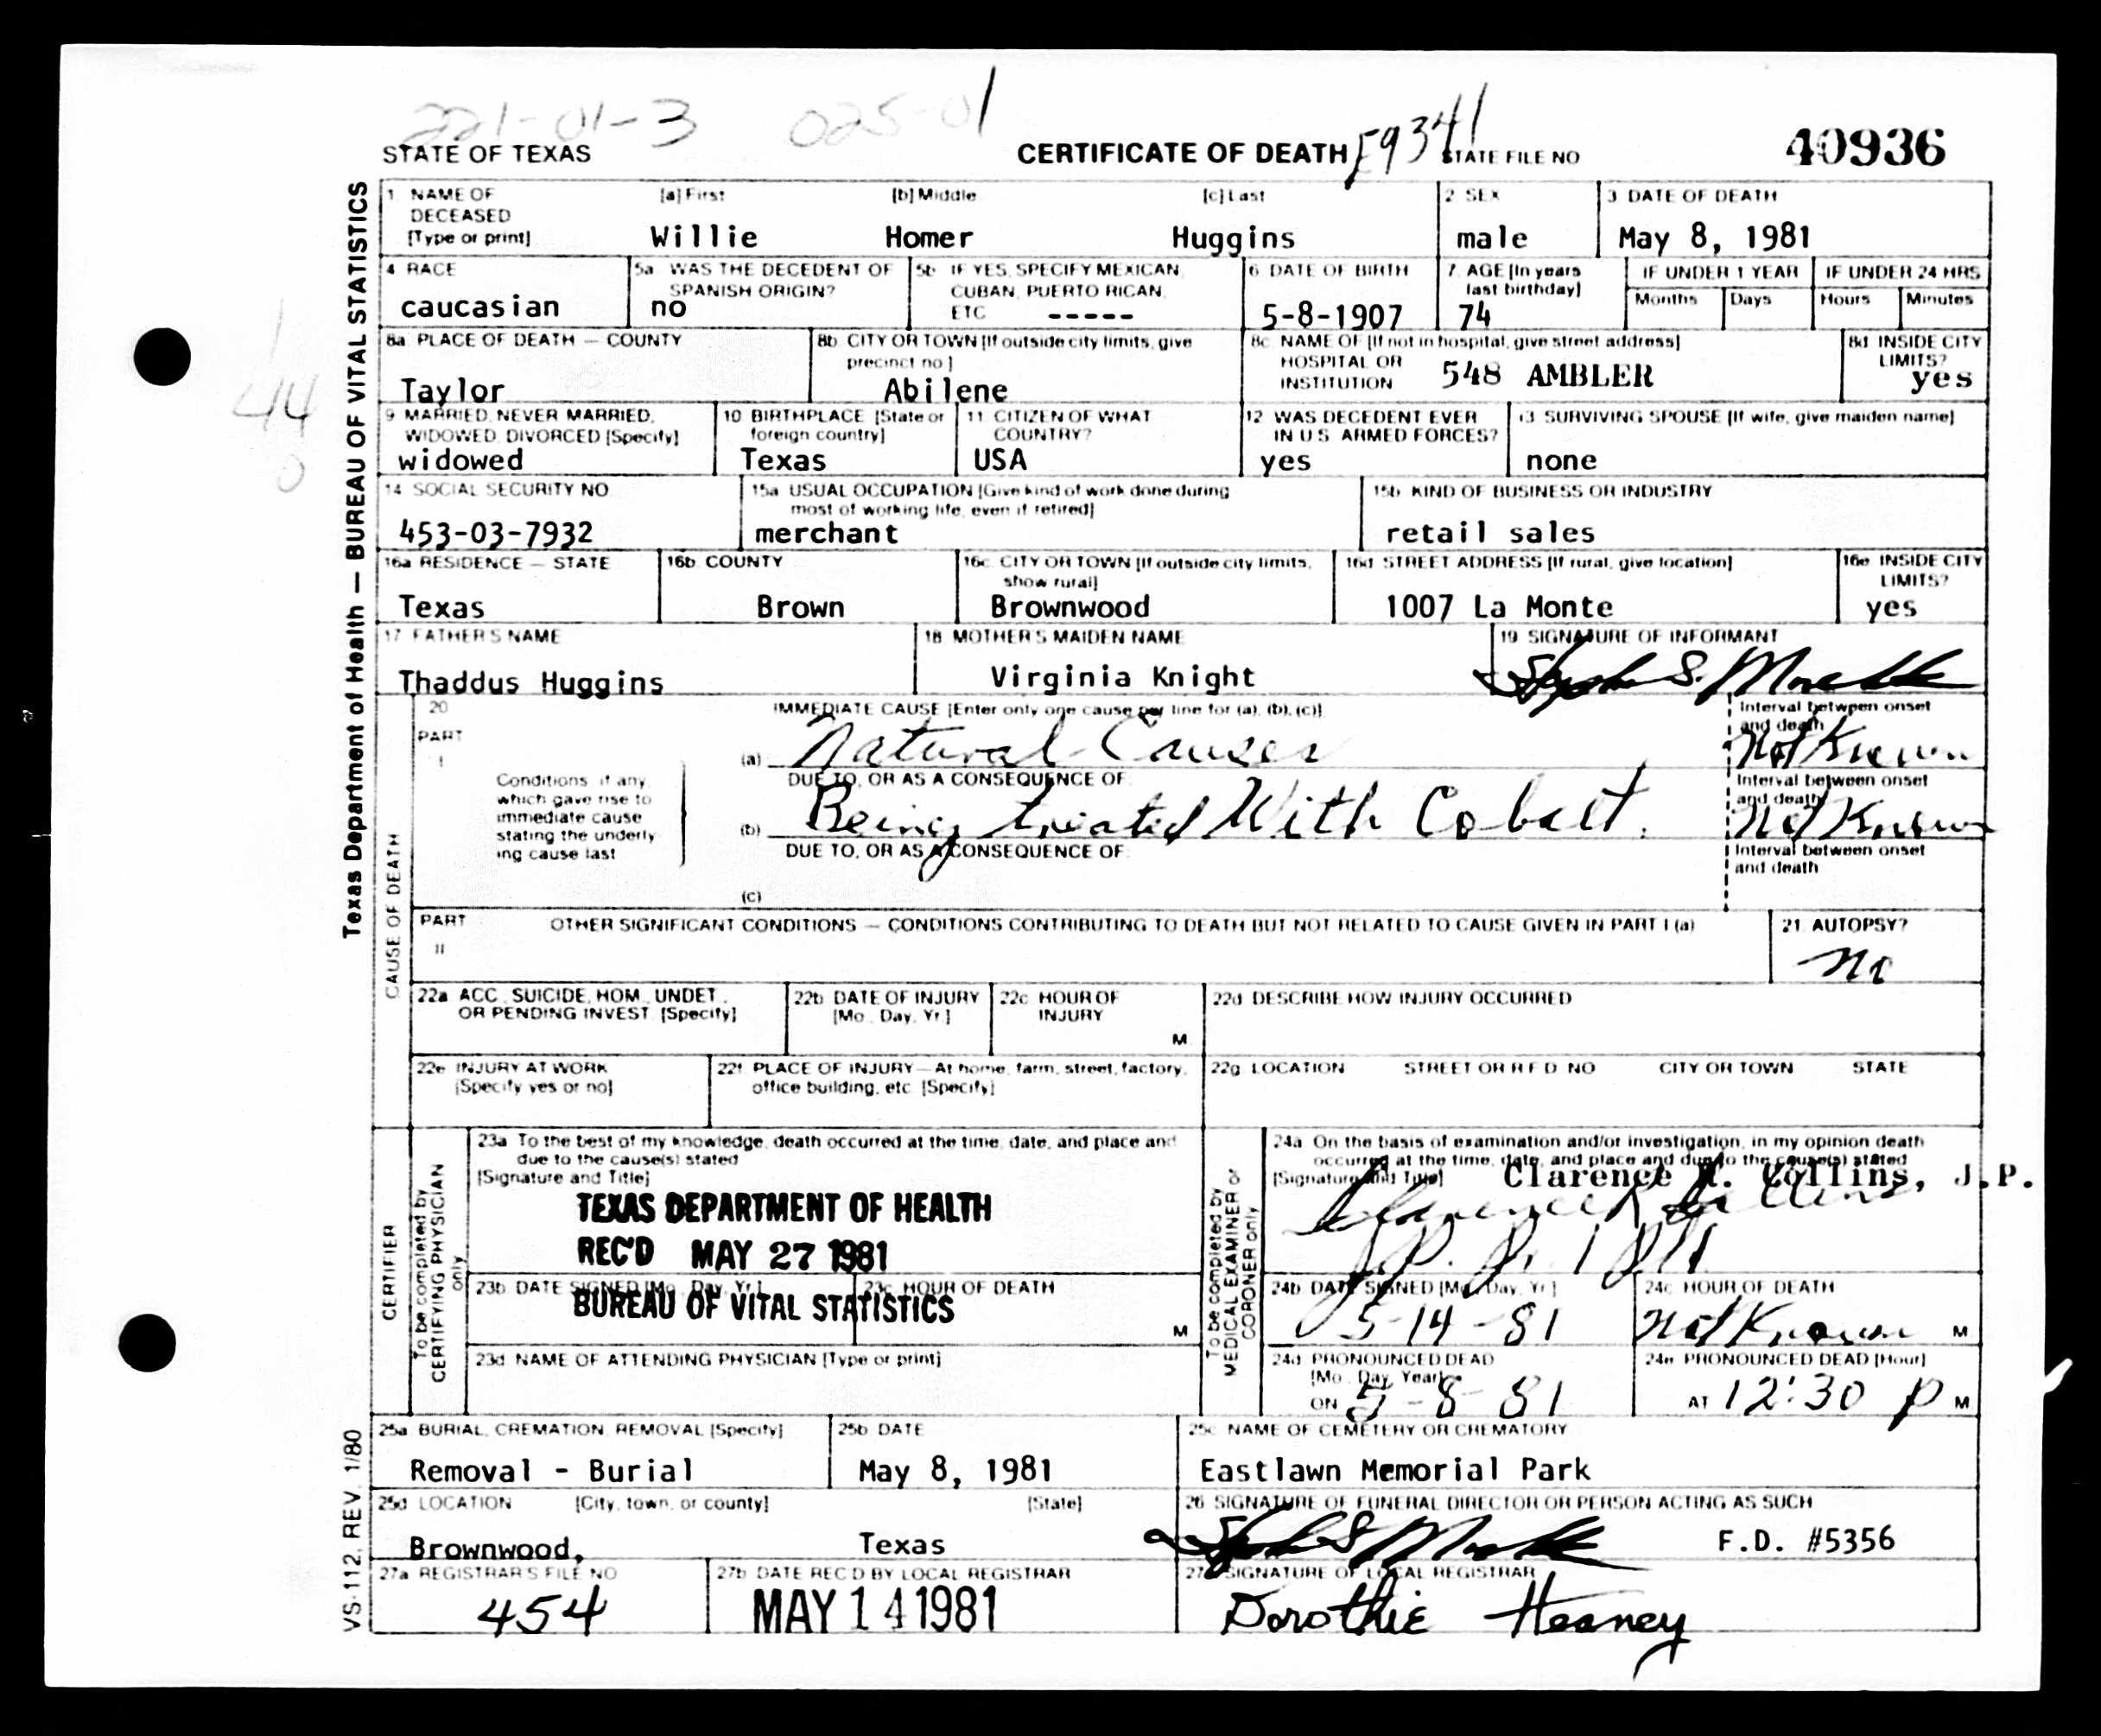 221-01-3 025-01
STATE OF TEXAS CERTIFICATE OF DEATH STATE FILE NO 40936
Texas Department of Health — BUREAU OF VITAL STATISTICS
1 NAME OF DECEASED [Type or print] [a] First [b] Middle [c] Last 2 SEX 3 DATE OF DEATH
Willie Homer Huggins male May 8, 1981
4 RACE 5a WAS THE DECEDENT OF SPANISH ORIGIN? 5b IF YES, SPECIFY MEXICAN, CUBAN, PUERTO RICAN, ETC 6 DATE OF BIRTH 7. AGE [In years last birthday] IF UNDER 1 YEAR IF UNDER 24 HRS
Months Days Hours Minutes
caucasian no ----- 5-8-1907 74
8a PLACE OF DEATH — COUNTY 8b CITY OR TOWN [If outside city limits, give precinct no] 8c NAME OF [If not in hospital, give street address] HOSPITAL OR INSTITUTION 8d INSIDE CITY LIMITS?
Taylor Abilene 548 AMBLER yes
9 MARRIED, NEVER MARRIED, WIDOWED, DIVORCED [Specify] 10 BIRTHPLACE [State or foreign country] 11 CITIZEN OF WHAT COUNTRY? 12 WAS DECEDENT EVER IN U S ARMED FORCES? 13 SURVIVING SPOUSE [If wife, give maiden name]
widowed Texas USA yes none
14 SOCIAL SECURITY NO 15a USUAL OCCUPATION [Give kind of work done during most of working life, even if retired] 15b KIND OF BUSINESS OR INDUSTRY
453-03-7932 merchant retail sales
16a RESIDENCE — STATE 16b COUNTY 16c CITY OR TOWN [If outside city limits, show rural] 16d STREET ADDRESS [If rural, give location] 16e INSIDE CITY LIMITS?
Texas Brown Brownwood 1007 La Monte yes
17 FATHER'S NAME 18 MOTHER'S MAIDEN NAME 19 SIGNATURE OF INFORMANT
Thaddus Huggins Virginia Knight
CAUSE OF DEATH
20 IMMEDIATE CAUSE [Enter only one cause per line for (a), (b), (c)] Interval between onset and death
PART I
(a) Natural Causes Not Known
Conditions, if any, which gave rise to immediate cause stating the underlying cause last
DUE TO, OR AS A CONSEQUENCE OF Interval between onset and death
(b) Being treated With Cobalt. Not Known
DUE TO, OR AS A CONSEQUENCE OF Interval between onset and death
(c)
PART II OTHER SIGNIFICANT CONDITIONS — CONDITIONS CONTRIBUTING TO DEATH BUT NOT RELATED TO CAUSE GIVEN IN PART I (a) 21 AUTOPSY?
no
22a ACC., SUICIDE, HOM., UNDET., OR PENDING INVEST. [Specify] 22b DATE OF INJURY [Mo., Day, Yr.] 22c HOUR OF INJURY M 22d DESCRIBE HOW INJURY OCCURRED
22e INJURY AT WORK [Specify yes or no] 22f PLACE OF INJURY — At home, farm, street, factory, office building, etc [Specify] 22g LOCATION STREET OR R F D NO CITY OR TOWN STATE
CERTIFIER
To be completed by CERTIFYING PHYSICIAN only
23a To the best of my knowledge, death occurred at the time, date, and place and due to the cause(s) stated
[Signature and Title]
TEXAS DEPARTMENT OF HEALTH
REC'D MAY 27 1981
BUREAU OF VITAL STATISTICS
23b DATE SIGNED [Mo., Day, Yr.] 23c HOUR OF DEATH M
23d NAME OF ATTENDING PHYSICIAN [Type or print]
To be completed by MEDICAL EXAMINER or CORONER only
24a On the basis of examination and/or investigation, in my opinion death occurred at the time, date, and place and due to the cause(s) stated
[Signature and Title] Clarence R. Collins, J.P.
Clarence R Collins
24b DATE SIGNED [Mo., Day, Yr.] 24c HOUR OF DEATH
5-14-81 Not Known M
24d PRONOUNCED DEAD [Mo., Day, Year] 24e PRONOUNCED DEAD [Hour]
ON 5-8-81 AT 12:30 P M
25a BURIAL, CREMATION, REMOVAL [Specify] 25b DATE 25c NAME OF CEMETERY OR CREMATORY
Removal - Burial May 8, 1981 Eastlawn Memorial Park
25d LOCATION [City, town, or county] [State] 26 SIGNATURE OF FUNERAL DIRECTOR OR PERSON ACTING AS SUCH
Brownwood, Texas F.D. #5356
27a REGISTRAR'S FILE NO 27b DATE REC'D BY LOCAL REGISTRAR 27c SIGNATURE OF LOCAL REGISTRAR
454 MAY 14 1981 Dorothie Heaney
VS-112, REV. 1/80